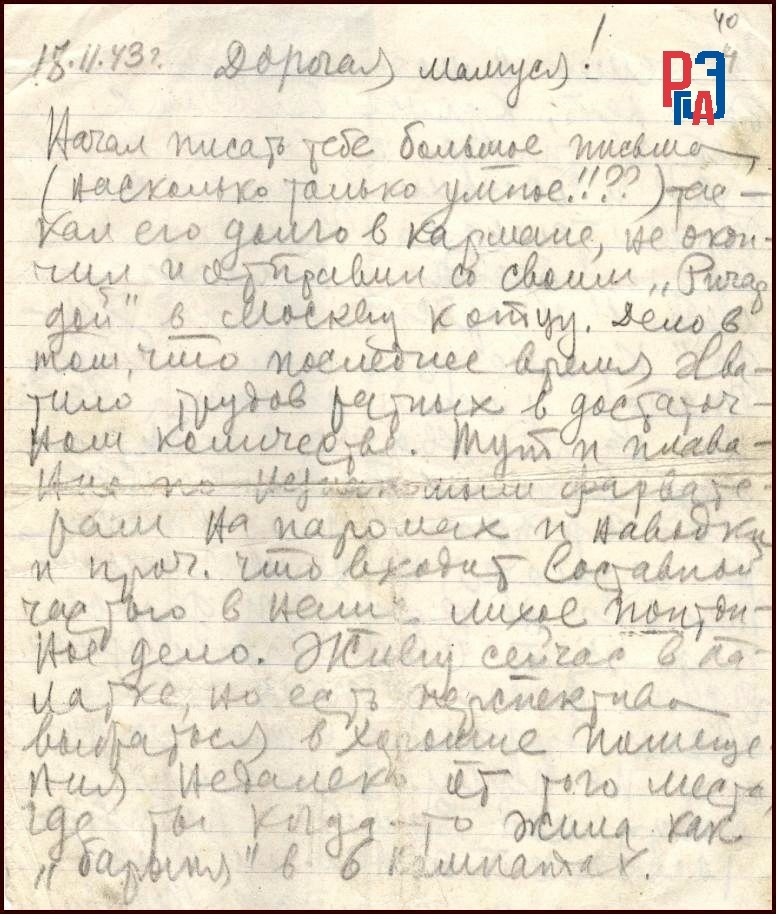 40
18.II.43 г. Дорогая мамуся!
РГАЭ
Начал писать тебе большое письмо
(насколько только умное!!??) тас-
кал его долго в кармане, не окон-
чил и отправил со своим „Ричар
дой" в Москву к отцу. Дело в
том, что последнее время хва-
тило трудов ратных в достаточ-
ном количестве. Тут и плава-
ния по незнакомым фарвате-
рам на паромах и наводки
и проч. что входит составной
частью в наше лихое понтон-
ное дело. Живу сейчас в па-
латке, но есть перспектива
выбраться в хорошие помеще
ния недалеко от того места,
где ты когда-то жила как
„барыня" в 6 комнатах.